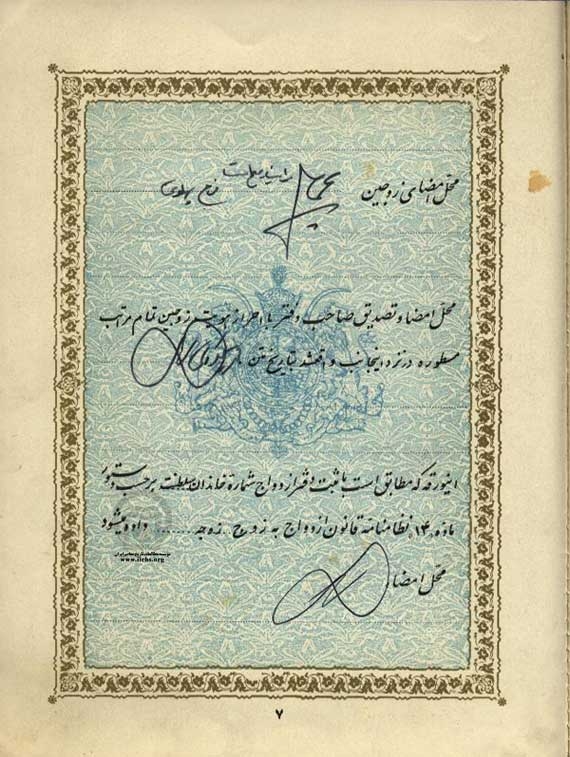 محل امضای زوجین
فرح پهلوی
محل امضا و تصدیق صاحب دفتر با احراز هویت زوجین تمام مراتب
مسطوره در نزد اینجانب واقع شد بتاریخ متن
اینورقه که مطابق است با ثبت دفتر ازدواج شمارهٔ خاندان سلطنت برحسب دستور
مادهٔ ۱۴ نظامنامه قانون ازدواج به زوج .. زوجه ........ داده میشود
موسسه مطالعات تاریخ معاصر ایران
www.iichs.org
محل امضاء
۷